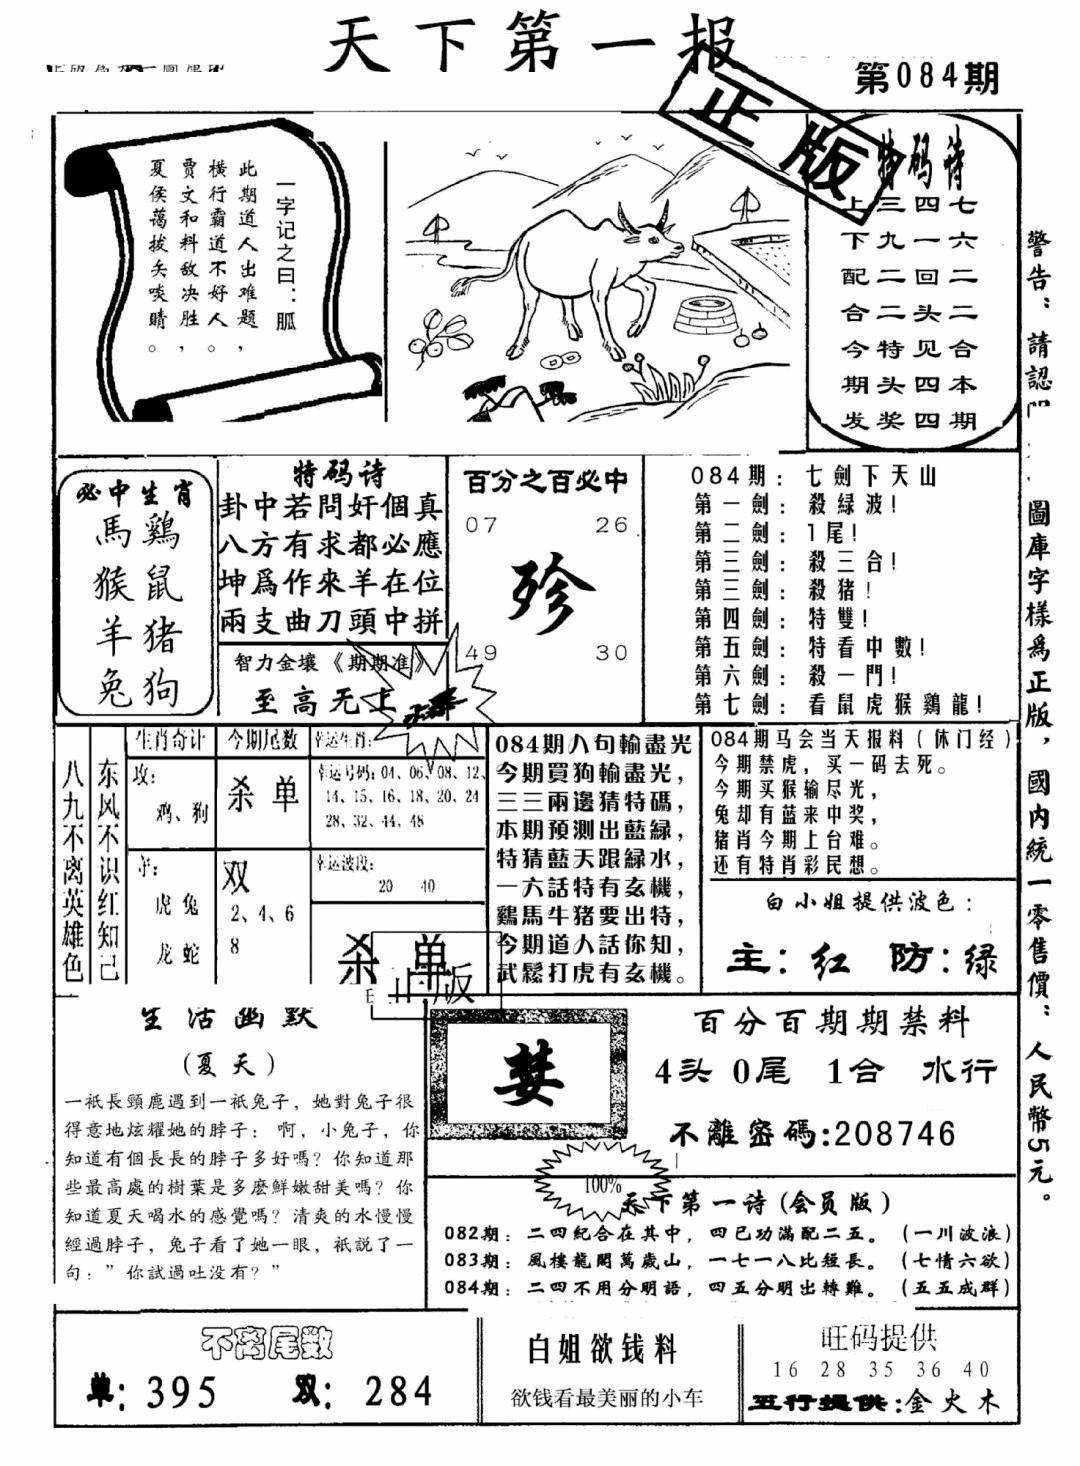 天下第一报
第084期
正版
一字记之曰：胍
此期道人出难题，
横行霸道不好人。
贾文和料敌决胜，
夏侯蔼拔矢啖睛。
特码诗
上三四七
下九一六
配二回二
合二头二
今特见合
期头四本
发奖四期
警告：請認
圖庫字樣爲正版，國内統一零售價：人民幣5元。
必中生肖
馬鷄
猴鼠
羊猪
兔狗
特码诗
卦中若問奸個真
八方有求都必應
坤爲作來羊在位
兩支曲刀頭中拼
智力金壤《期期准》
至高无上
百分之百必中
07 26
殄
49 30
084期：七劍下天山
第一劍：殺緑波！
第二劍：1尾！
第三劍：殺三合！
第三劍：殺猪！
第四劍：特雙！
第五劍：特看中數！
第六劍：殺一門！
第七劍：看鼠虎猴鷄龍！
东风不识红知己
八九不离英雄色
生肖奇计
攻：
鸡、狗
守：
虎 兔
龙 蛇
今期尾数
杀 单
双
2、4、6
8
幸运生肖：
幸运号码：04、06、08、12、
14、15、16、18、20、24
28、32、44、48
幸运波段：
20 40
杀 单
正版
084期八句輸盡光
今期買狗輸盡光，
三三兩邊猜特碼，
本期預測出藍緑，
特猜藍天跟緑水，
一六話特有玄機，
鷄馬牛猪要出特，
今期道人話你知，
武鬆打虎有玄機。
084期马会当天报料（休门经）
今期禁虎，买一码去死。
今期买猴输尽光，
兔却有蓝来中奖，
猪肖今期上台难。
还有特肖彩民想。
白小姐提供波色：
主：红 防：绿
生活幽默
（夏天）
一衹長頸鹿遇到一衹兔子，她對兔子很
得意地炫耀她的脖子：啊，小兔子，你
知道有個長長的脖子多好嗎？你知道那
些最高處的樹葉是多麽鮮嫩甜美嗎？你
知道夏天喝水的感覺嗎？清爽的水慢慢
經過脖子，兔子看了她一眼，衹説了一
句：”你試過吐没有？”
婪
百分百期期禁料
4头 0尾 1合 水行
不離密碼:208746
100%
天下第一诗（会员版）
082期：二四紀合在其中，四已功滿配二五。（一川波浪）
083期：風樓龍閣萬歲山，一七一八比短長。（七情六欲）
084期：二四不用分明語，四五分明出轉難。（五五成群）
不离尾数
单：395 双：284
白姐欲钱料
欲钱看最美丽的小车
旺码提供
16 28 35 36 40
五行提供：金火木